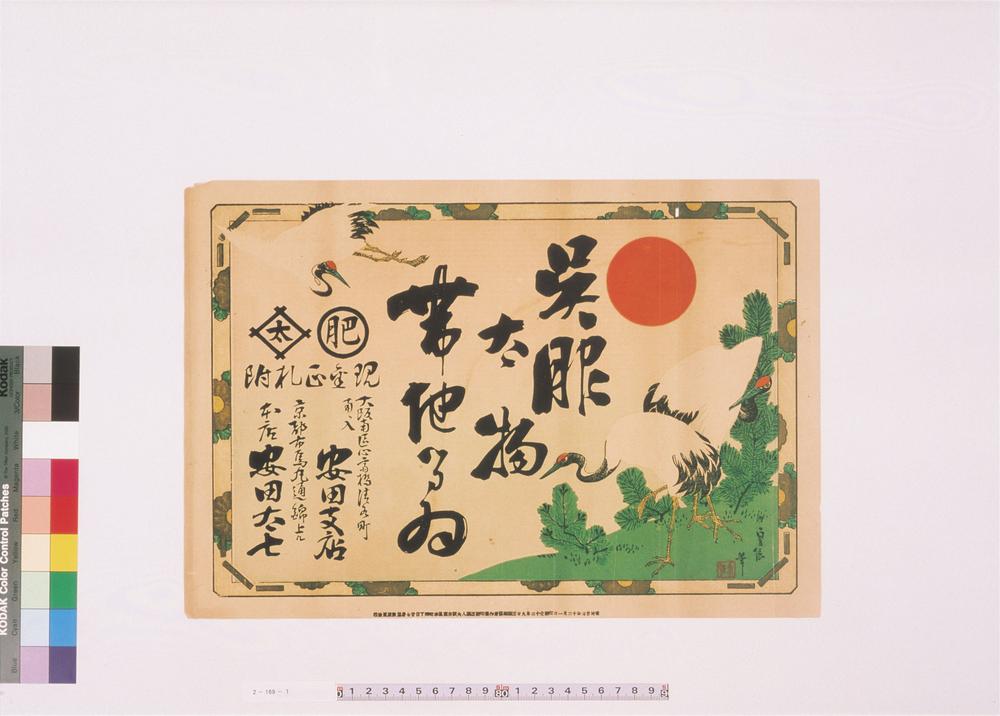 呉服
太物
帯地るゐ
肥
太
現金正札附
大阪南区心斎橋清水町
南入
安田支店
京都市烏丸通錦上ル
本店
安田太七
貞信
筆
Kodak Color Control Patches
Blue Cyan Green Yellow Red Magenta White 3/Color Black
2-169-1
1 2 3 4 5 6 7 8 9 80 1 2 3 4 5 6 7 8 9